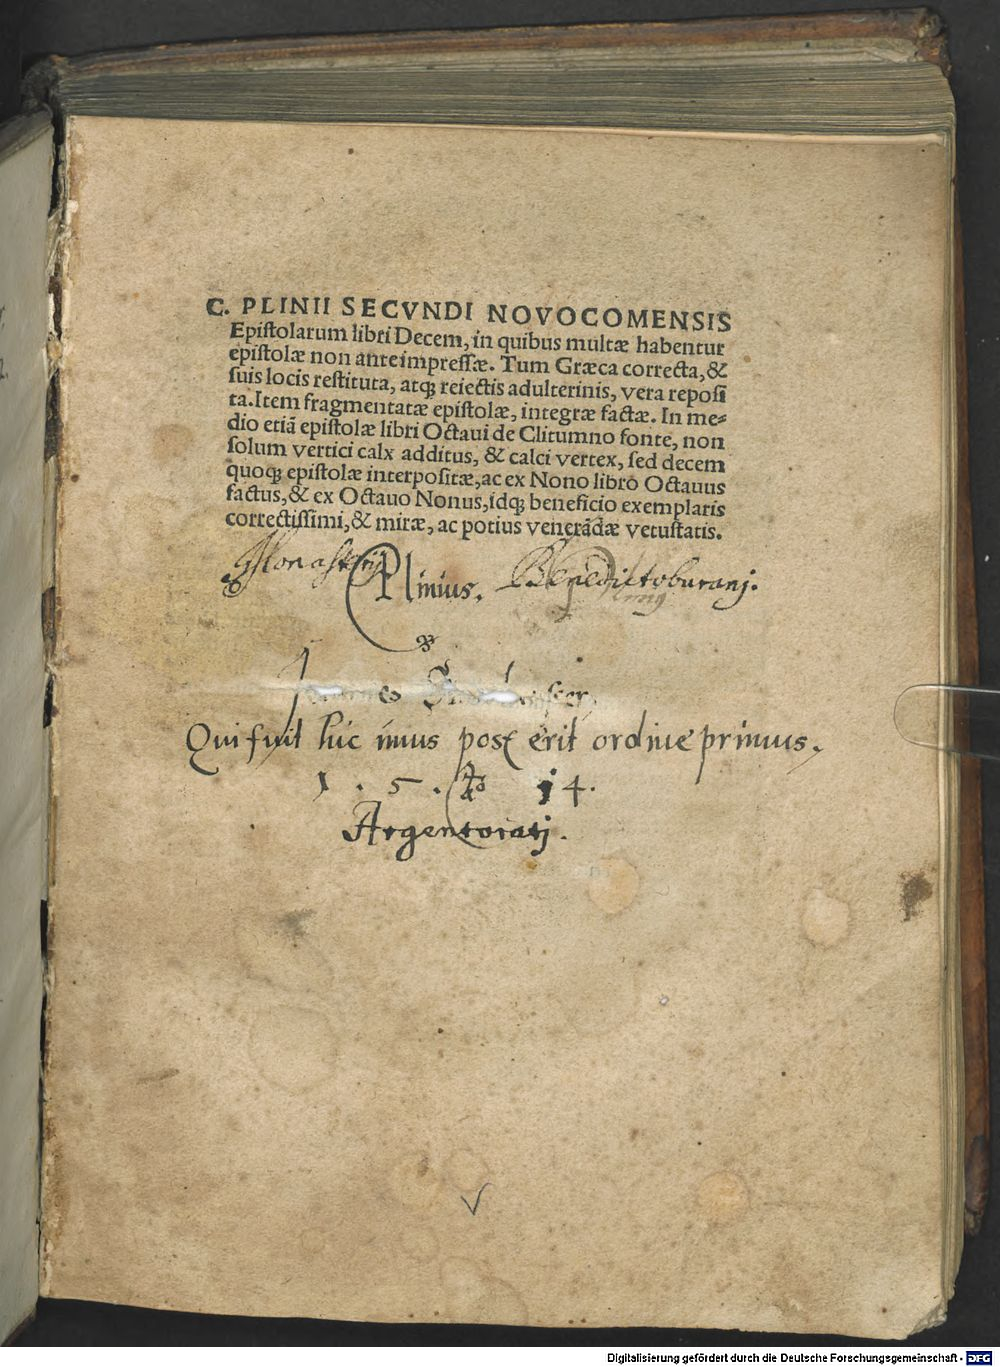 C. PLINII SECVNDI NOVOCOMENSIS
Epiſtolarum libri Decem, in quibus multæ habentur
epiſtolæ non ante impreſſæ. Tum Græca correcta, &
ſuis locis reſtituta, atqꝫ reiectis adulterinis, vera repoſi
ta. Item fragmentatæ epiſtolæ, integræ factæ. In me⸗
dio etiã epiſtolæ libri Octaui de Clitumno fonte, non
ſolum vertici calx additus, & calci vertex, ſed decem
quoqꝫ epiſtolæ interpoſitæ, ac ex Nono libro Octauus
factus, & ex Octauo Nonus, idqꝫ beneficio exemplaris
correctiſſimi, & miræ, ac potius venerãdæ vetuſtatis.
Monasterij Plinius. Benedictoburanj.
Qui fuit hic imus post erit ordine primus.
1.5. 14.
Argentoratj.
Digitalisierung gefördert durch die Deutsche Forschungsgemeinschaft - DFG